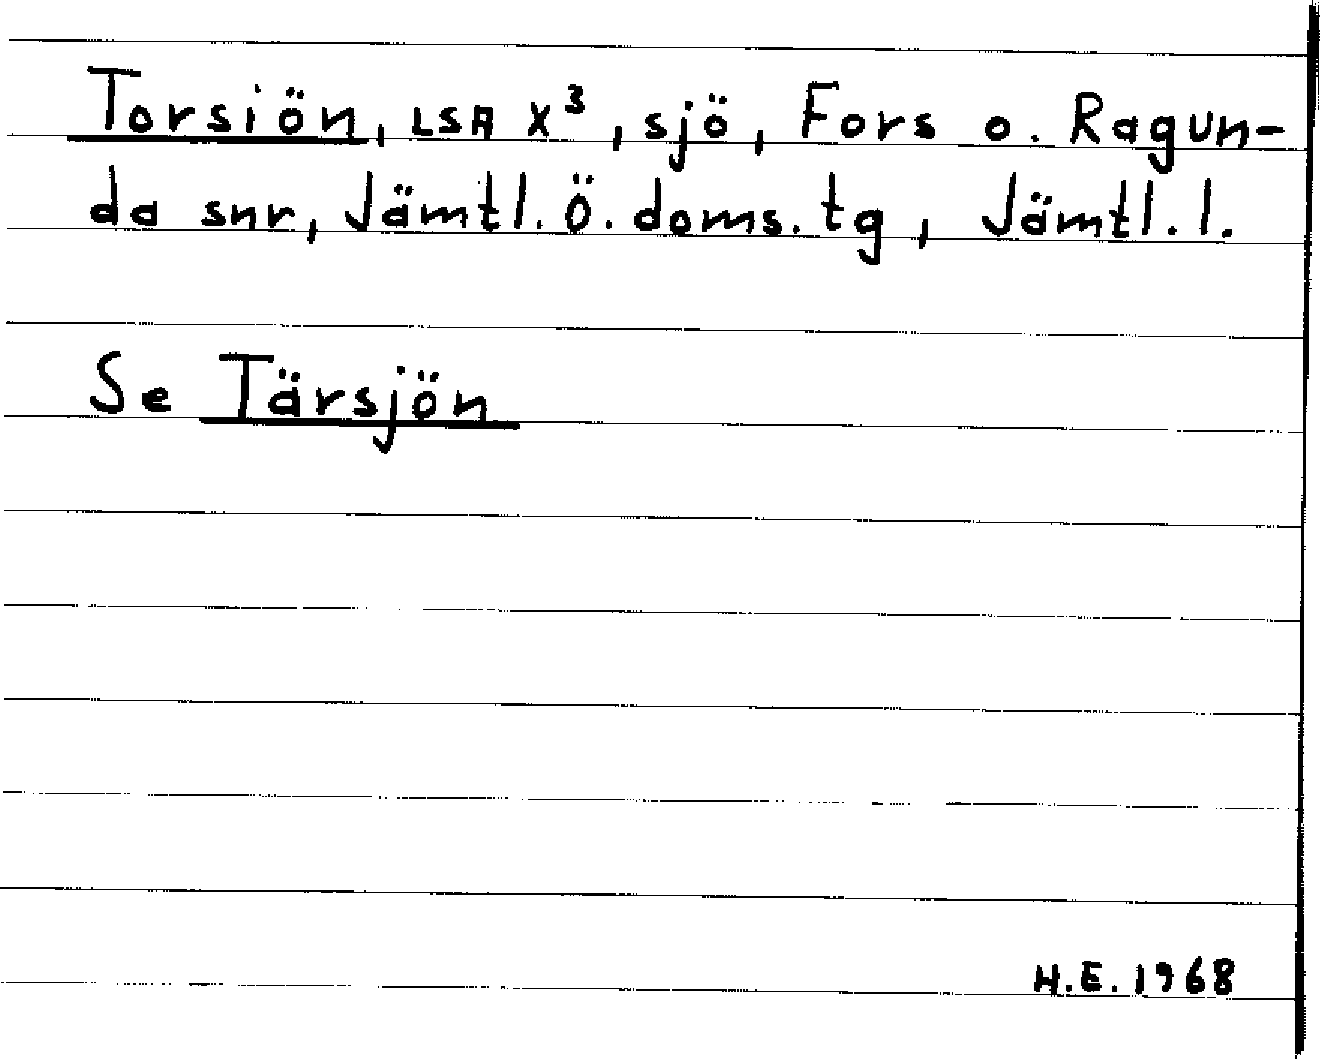 Torsiön, LSA X³, sjö, Fors o. Ragun-
da snr, Jämtl. Ö. doms. tg, Jämtl. l.
Se Tärsjön
H.E. 1968